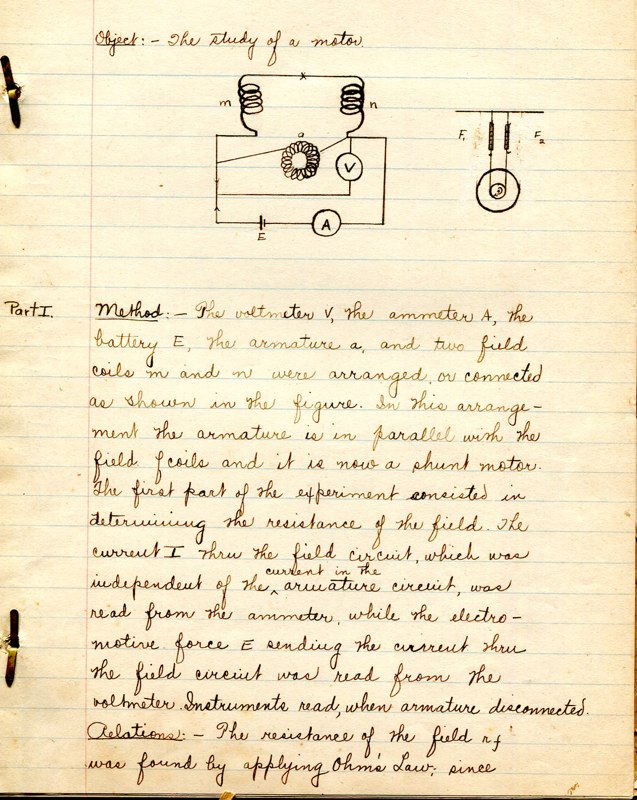 Object:- The study of a motor.
x
m
n
a
V
F1
F2
E
A
Part I.
Method:- The voltmeter V, the ammeter A, the
battery E, the armature a, and two field
coils m and n were arranged, or connected
as shown in the figure. In this arrange-
ment the armature is in parallel with the
field coils and it is now a shunt motor.
The first part of the experiment consisted in
determining the resistance of the field. The
current I thru the field circuit, which was
current in the
independent of the ^ armature circuit, was
read from the ammeter, while the electro-
motive force E sending the current thru
the field circuit was read from the
voltmeter. Instruments read, when armature disconnected.
Relations:- The resistance of the field rf
was found by applying Ohm's Law; since